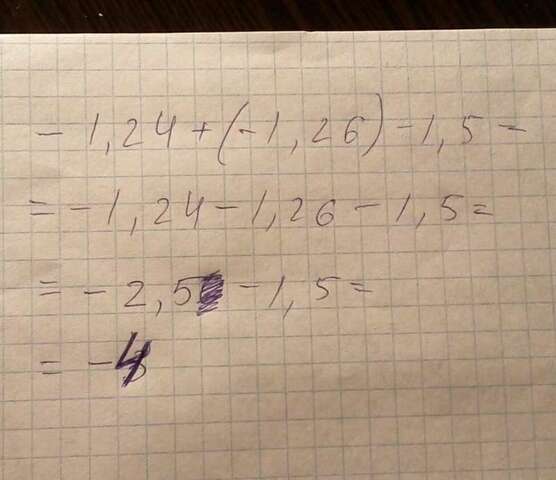 - 1,24 + (-1,26) - 1,5 =
= - 1,24 - 1,26 - 1,5 =
= - 2,5 - 1,5 =
= - 4